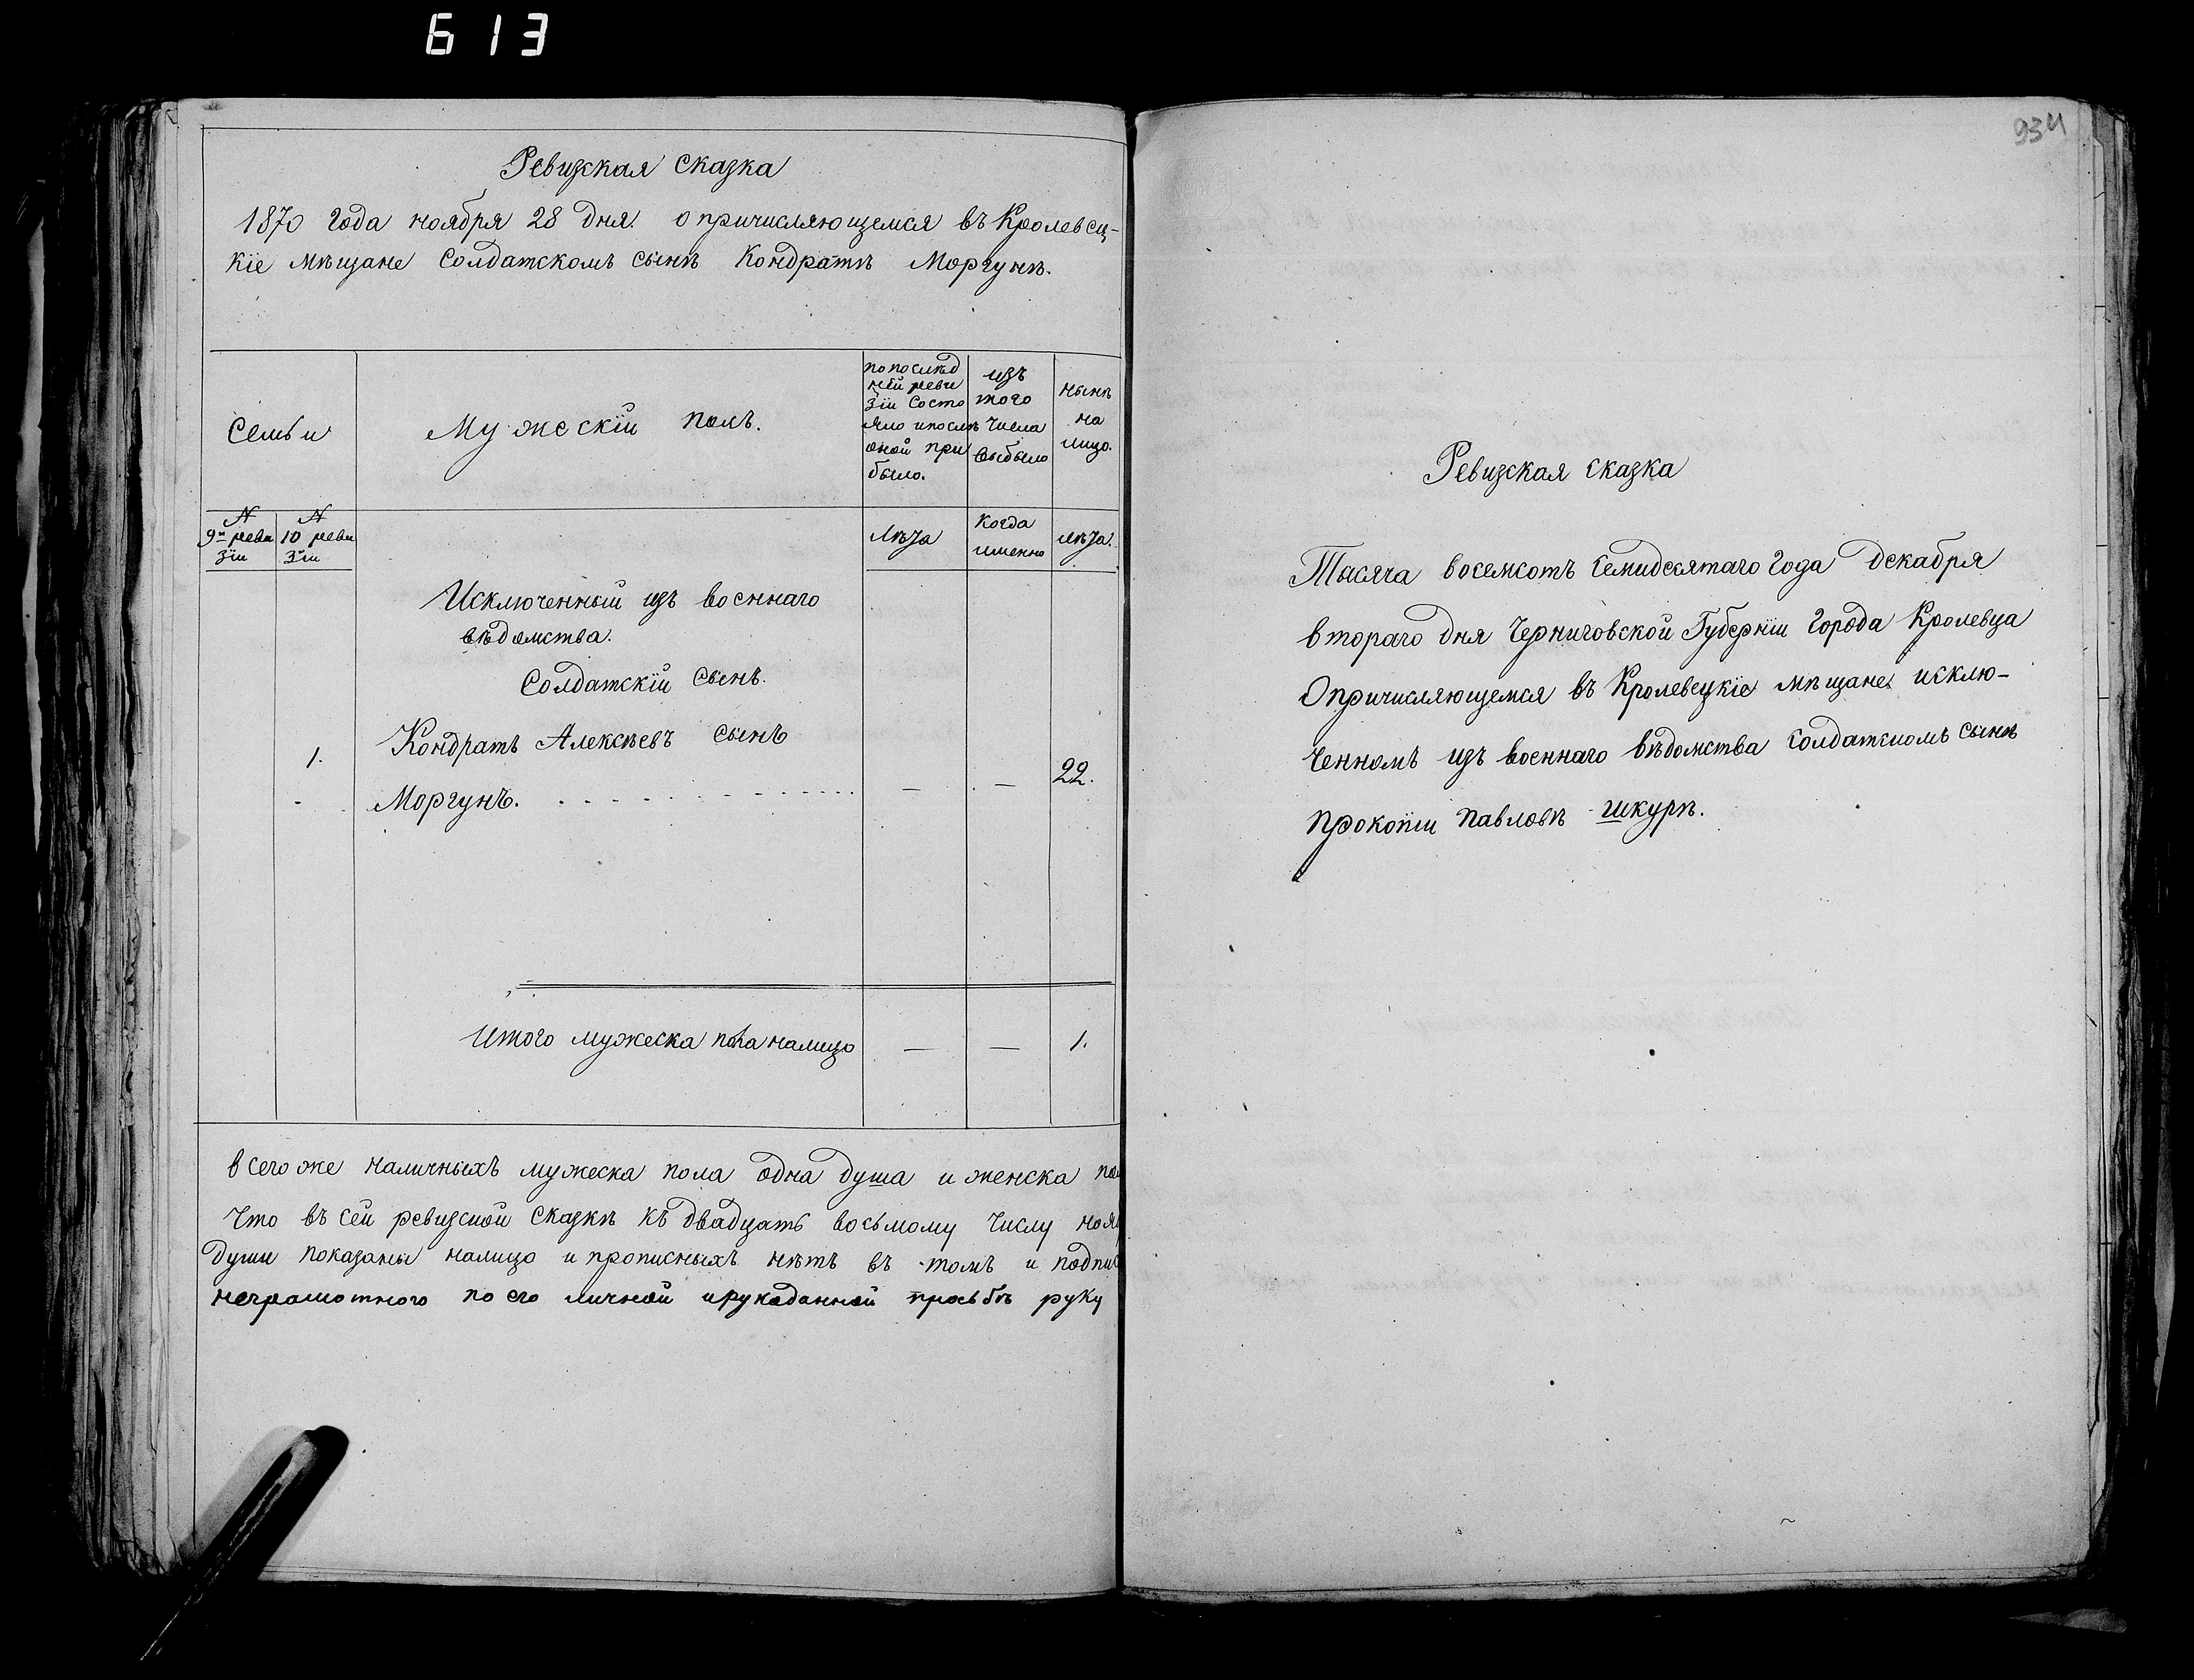 613
Ревизская сказка
1870 года ноября 28 дня. о причисляющемся въ Кролевец-
кіе мѣщане солдатскомъ сынѣ Кондратѣ Моргунѣ.
Семьи
Мужескій полъ.
по послѣд
ней реви
зіи состо
яло и послѣ
оной при
было.
изъ
того
числа
выбыло
нынѣ
на
лицо.
N
9й реви
зіи
N
10 реви
зіи
Лѣта
Когда
именно
лѣта.
Исключенный изъ военнаго
вѣдомства.
Солдатскій сынъ.
1.
Кондратъ Алексѣевъ сынъ
Моргунъ. — — 22.
Итого мужеска пола налицо — — 1.
всего же наличныхъ мужеска пола одна душа и женска
Что въ сей ревизской сказкѣ къ двадцать восьмому числу
души показаны налицо и прописныхъ нѣтъ въ томъ и
неграмотного по его личной и рукоданной прозьбѣ руку
934
Ревизская сказка
Тысяча восемсотъ семидесятаго года декабря
втораго дня Черниговской Губерніи города Кролевца
О причисляющемся въ Кролевецкіе мѣщане исклю-
ченномъ изъ военнаго вѣдомства солдатскомъ сынѣ
Прокопіи Павловѣ Шкурѣ.